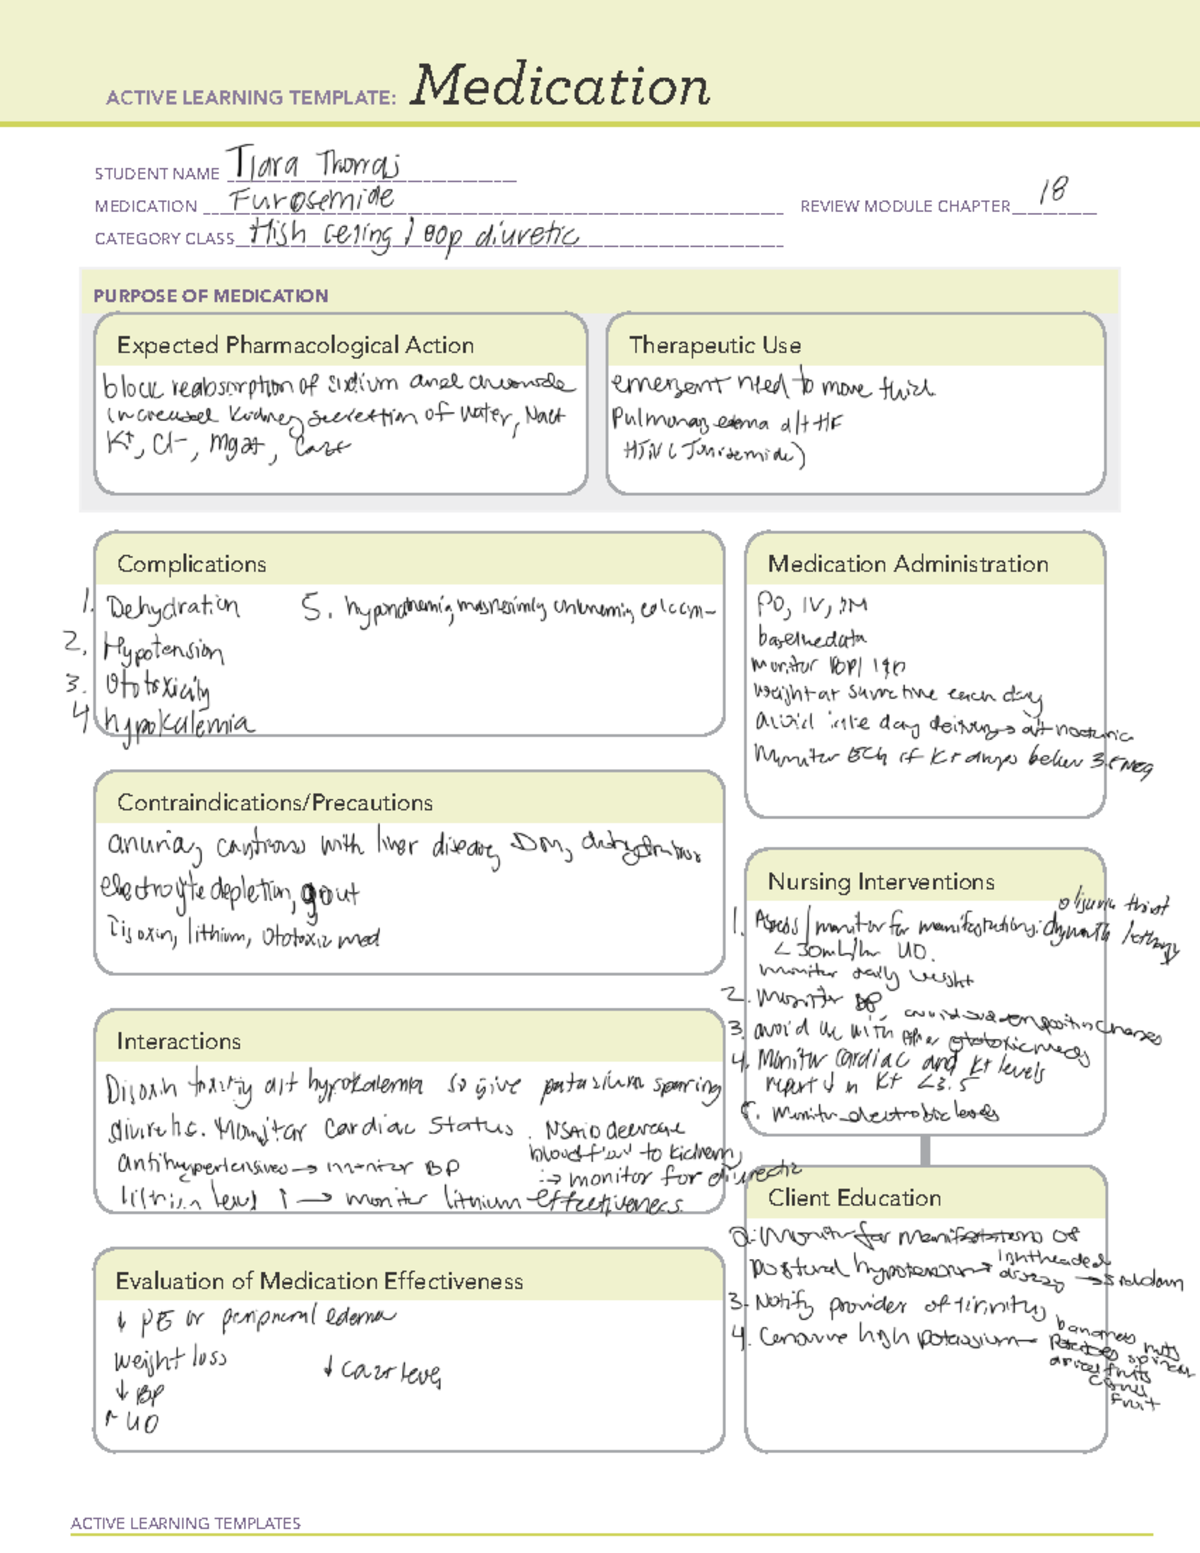 ACTIVE LEARNING TEMPLATE: Medication
STUDENT NAME Tiara Thomas
MEDICATION Furosemide
REVIEW MODULE CHAPTER 18
CATEGORY CLASS High ceiling loop diuretic
PURPOSE OF MEDICATION
Expected Pharmacological Action
block reabsorption of sodium and chloride
increased kidney secretion of water, Na+
K+, Cl-, Mg2+, Ca2+
Therapeutic Use
emergent need to move fluid
Pulmonary edema d/t HF
HTN (Torsemide)
Complications
1. Dehydration
2. Hypotension
3. Ototoxicity
4 hypokalemia
5.
Medication Administration
PO, IV, IM
baseline data
monitor BP/ I&O
weight at same time each day
avoid late day
Monitor ECG if K+ drops below 3.5 mEq
Contraindications/Precautions
anuria, cautious with liver disease, DM, dehydration
electrolyte depletion, gout
Digoxin, lithium, ototoxic med
Nursing Interventions
oliguria thirst
1. Assess/monitor for manifestations: dry mouth lethargy
<30mL/hr UO.
monitor daily weight
2. Monitor BP
avoid sudden position changes
3. avoid use with other ototoxic meds
4. Monitor cardiac and K+ levels
report ↓ in K+ <3.5
5. monitor electrolyte levels
Interactions
Digoxin toxicity d/t hypokalemia so give potassium sparing
diuretic. Monitor cardiac status.
NSAID decrease
blood flow to kidney
→ monitor for diuretic
effectiveness.
antihypertensives → monitor BP
lithium level ↑ → monitor lithium
Client Education
2. Monitor for manifestations of
postural hypotension → lightheaded
dizzy → sit/lie down
3. Notify provider of tinnitus
4. Consume high potassium - bananas nuts
potatoes spinach
dried fruits
citrus
fruit
Evaluation of Medication Effectiveness
↓ PE or peripheral edema
weight loss
↓ BP
↑ UO
↓ Ca2+ level
ACTIVE LEARNING TEMPLATES